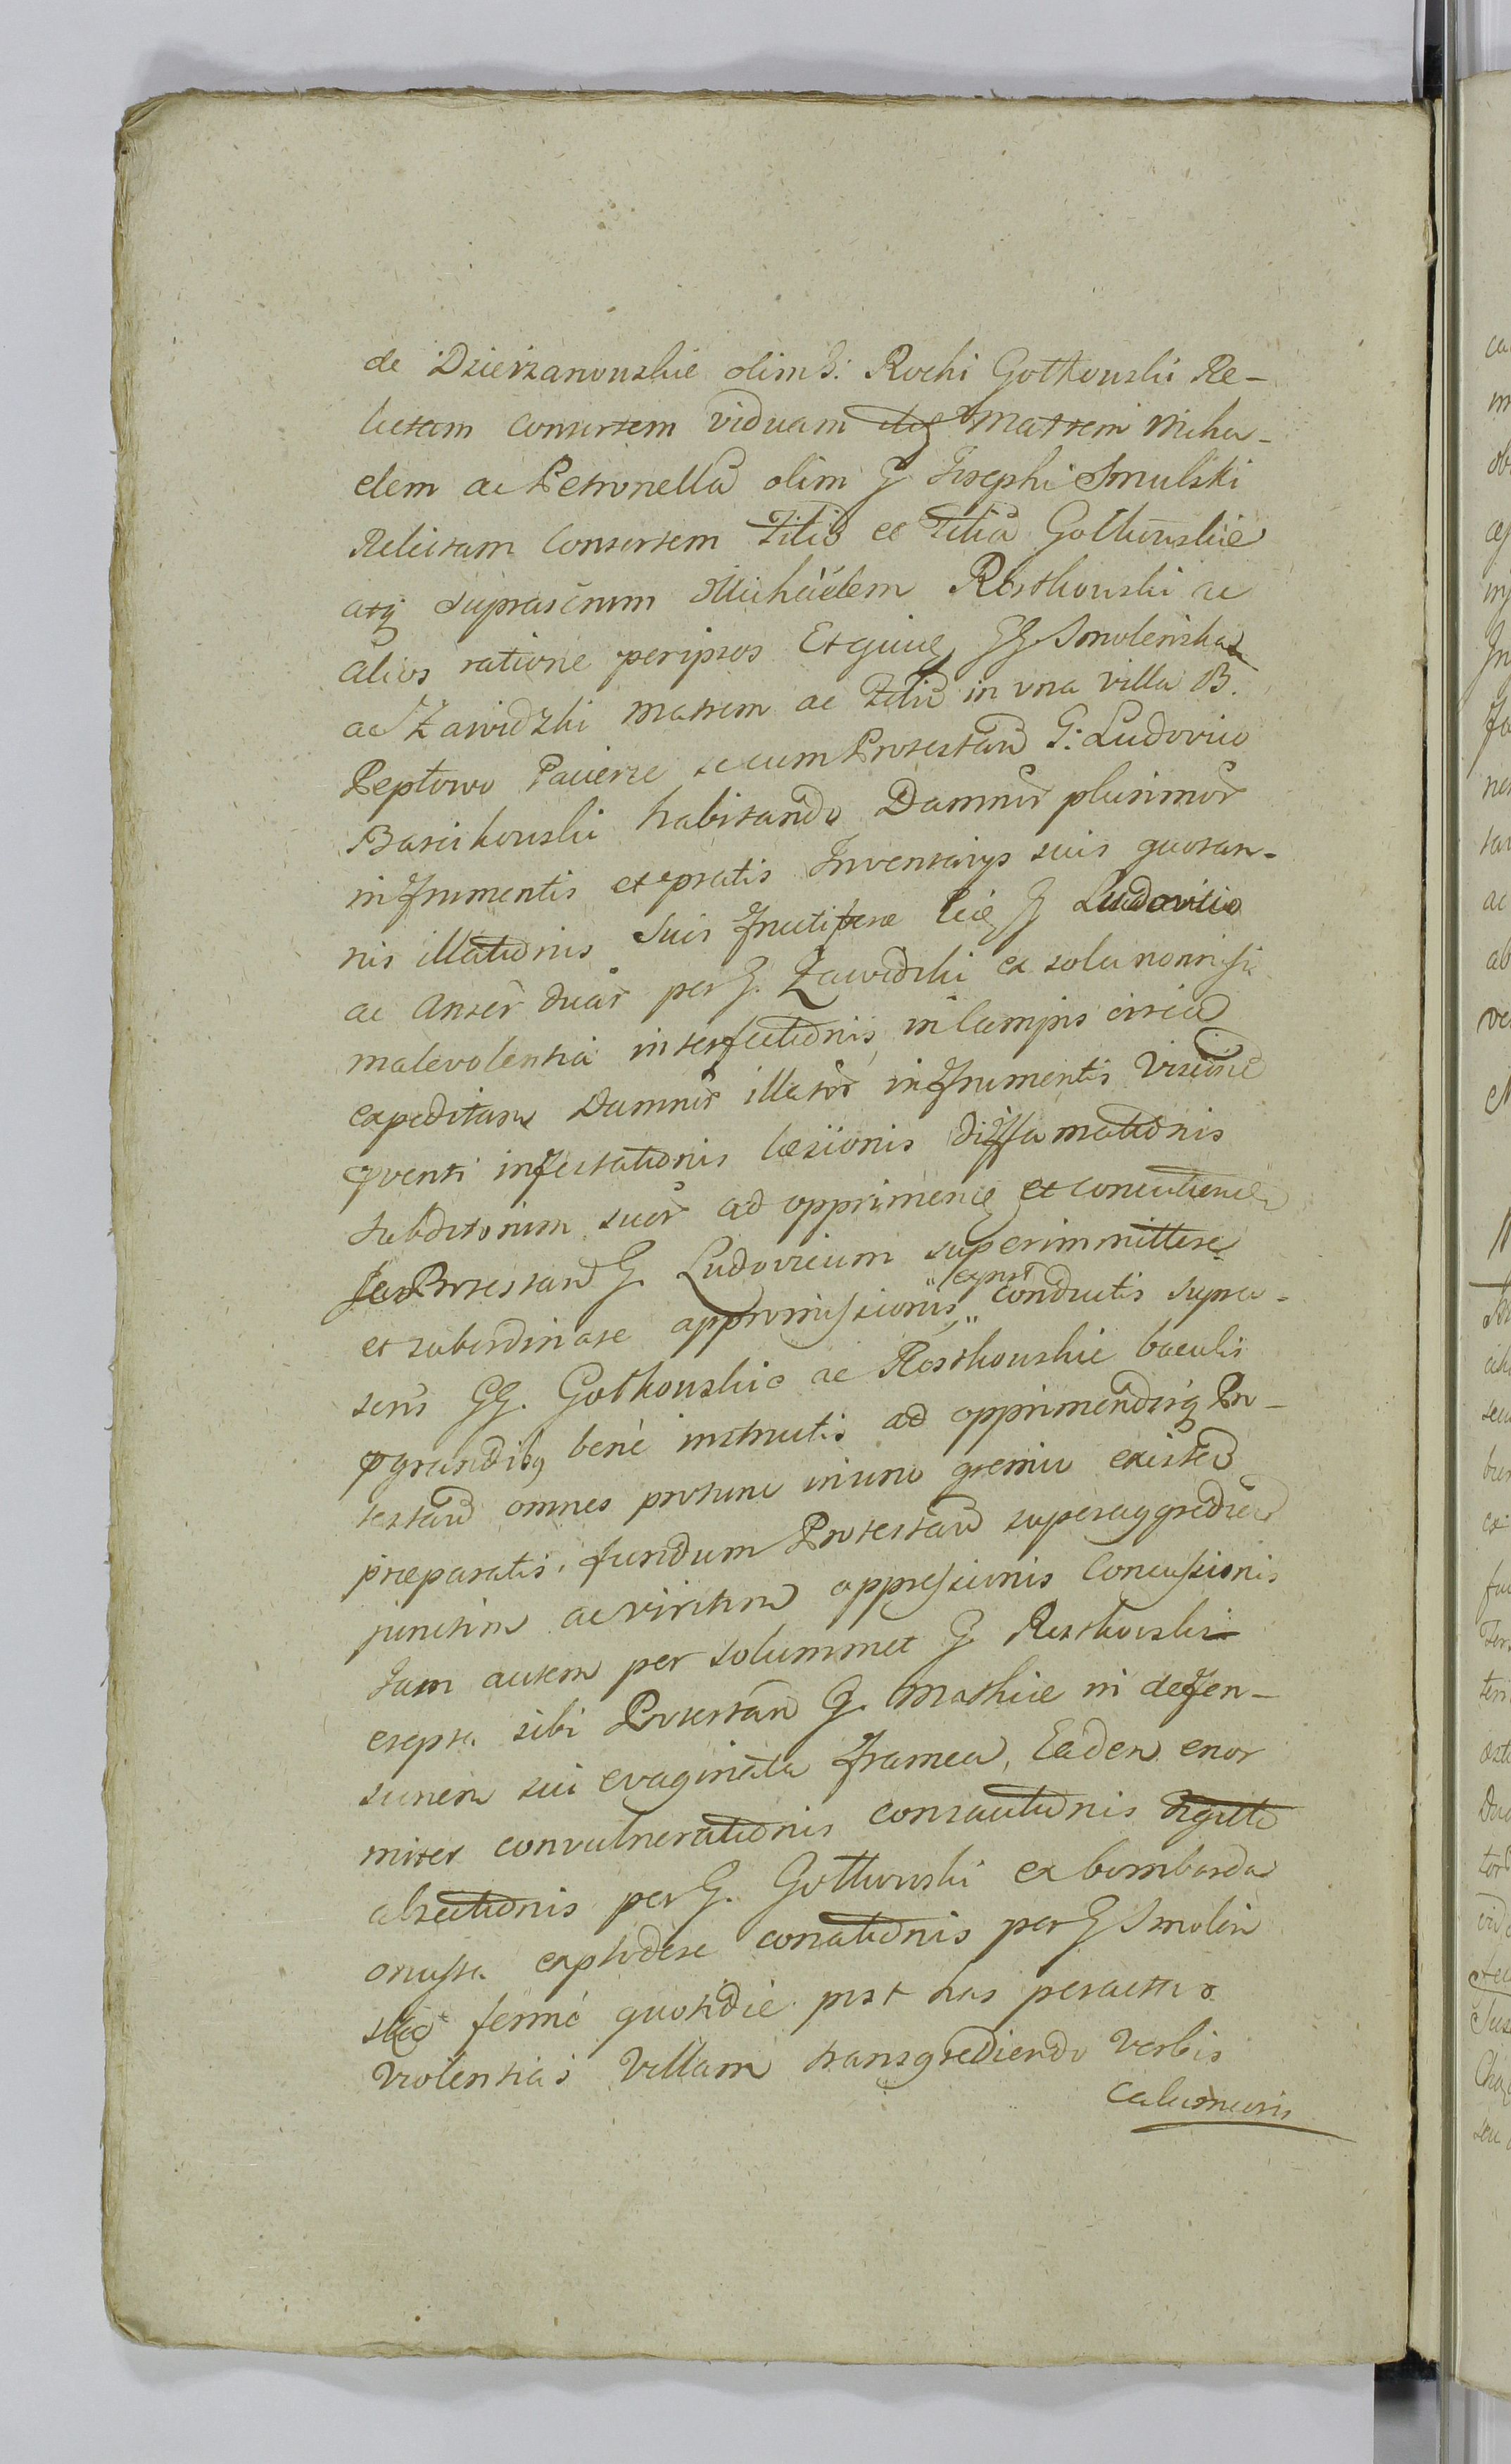 de Dzierzanowskie olim G: Rochi Gotkowski Re-
lictam Consortem viduam Matrem Micha-
elem ac Petronellā olim G Josephi Smulski
Relictam Consortem Filiū et Filiā Gotkowskie
atq suprascrium Michäelem Rostkowski ac
alios ratione per ipsos Et quidē GG Smolenska
ac Zawidzki matrem ac Filiū in una villa B.
Peptowo Pacierze secum Protestañ G: Ludovico
Barcikowski habitando Damnor plurimor
in frumentis et pratis Inventarys suis quotan-
nis illationis Suis G Ludovico
ac Anser duar per G. Zawidzki ex sola nonnisi
malevolentia interfectionis, in Campis circa
expeditam Damnor illator in frumentis Visione
infestationis læsionis diffamationis
subditorum suor ad opprimend et concutiend
Protestand G. Ludovicum superimmittere
et subordinare appromissionis, conductis supra-
scris GG. Gotkowskie ac Rostkowskie baculis
pgrandibq benè instructis ad opprimendosq Pro-
testañ omnes protunc in uno gremio existeñ
præparatis, fundum Protestañ superaggrediend
junctim ac viritim oppressionis Concussionis
Tum autem per solummet G. Rostkowski
erepta sibi Protestañ G. Mathiæ in defen-
sionem sui evaginata framea, Eadem enor
miter convulnerationis consauciationis digiti
absectionis per G. Gotkowski ex bombarda
onusta explodere conationis per G Smolen
skā fermè quotidie post has peractas
Violentias Villam transgrediendo Verbis
Calumniosis